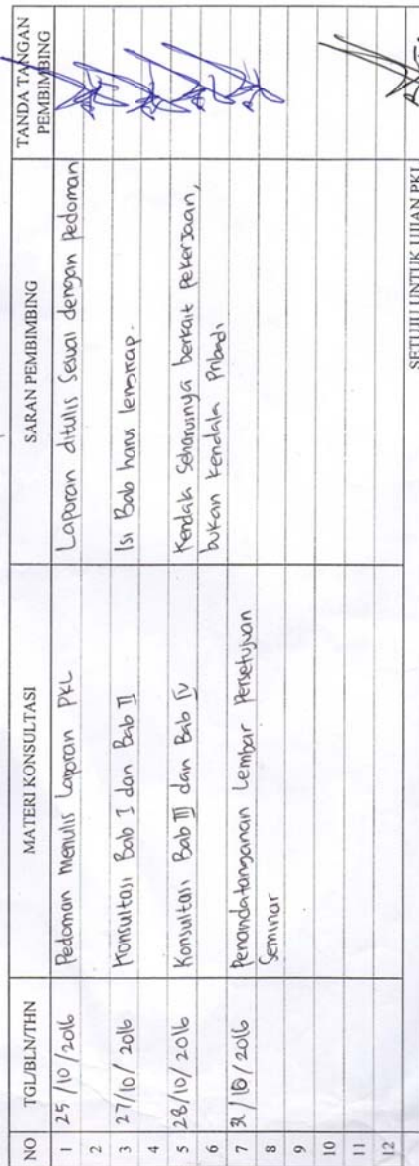 NO TGL/BLN/THN MATERI KONSULTASI SARAN PEMBIMBING TANDA TANGAN
PEMBIMBING
1 25/10/2016 Pedoman Menulis Laporan PKL Laporan ditulis Sesuai dengan Pedoman
2
3 27/10/2016 Konsultasi Bab I dan Bab II Isi Bab harus lengkap.
4
5 28/10/2016 Konsultasi Bab III dan Bab IV Kendala Seharusnya berkait pekerjaan,
6 bukan kendala Pribadi
7 31/10/2016 Penandatanganan Lembar Persetujuan
8 Seminar
9
10
11
12
SETUJU UNTUK UJIAN PKL